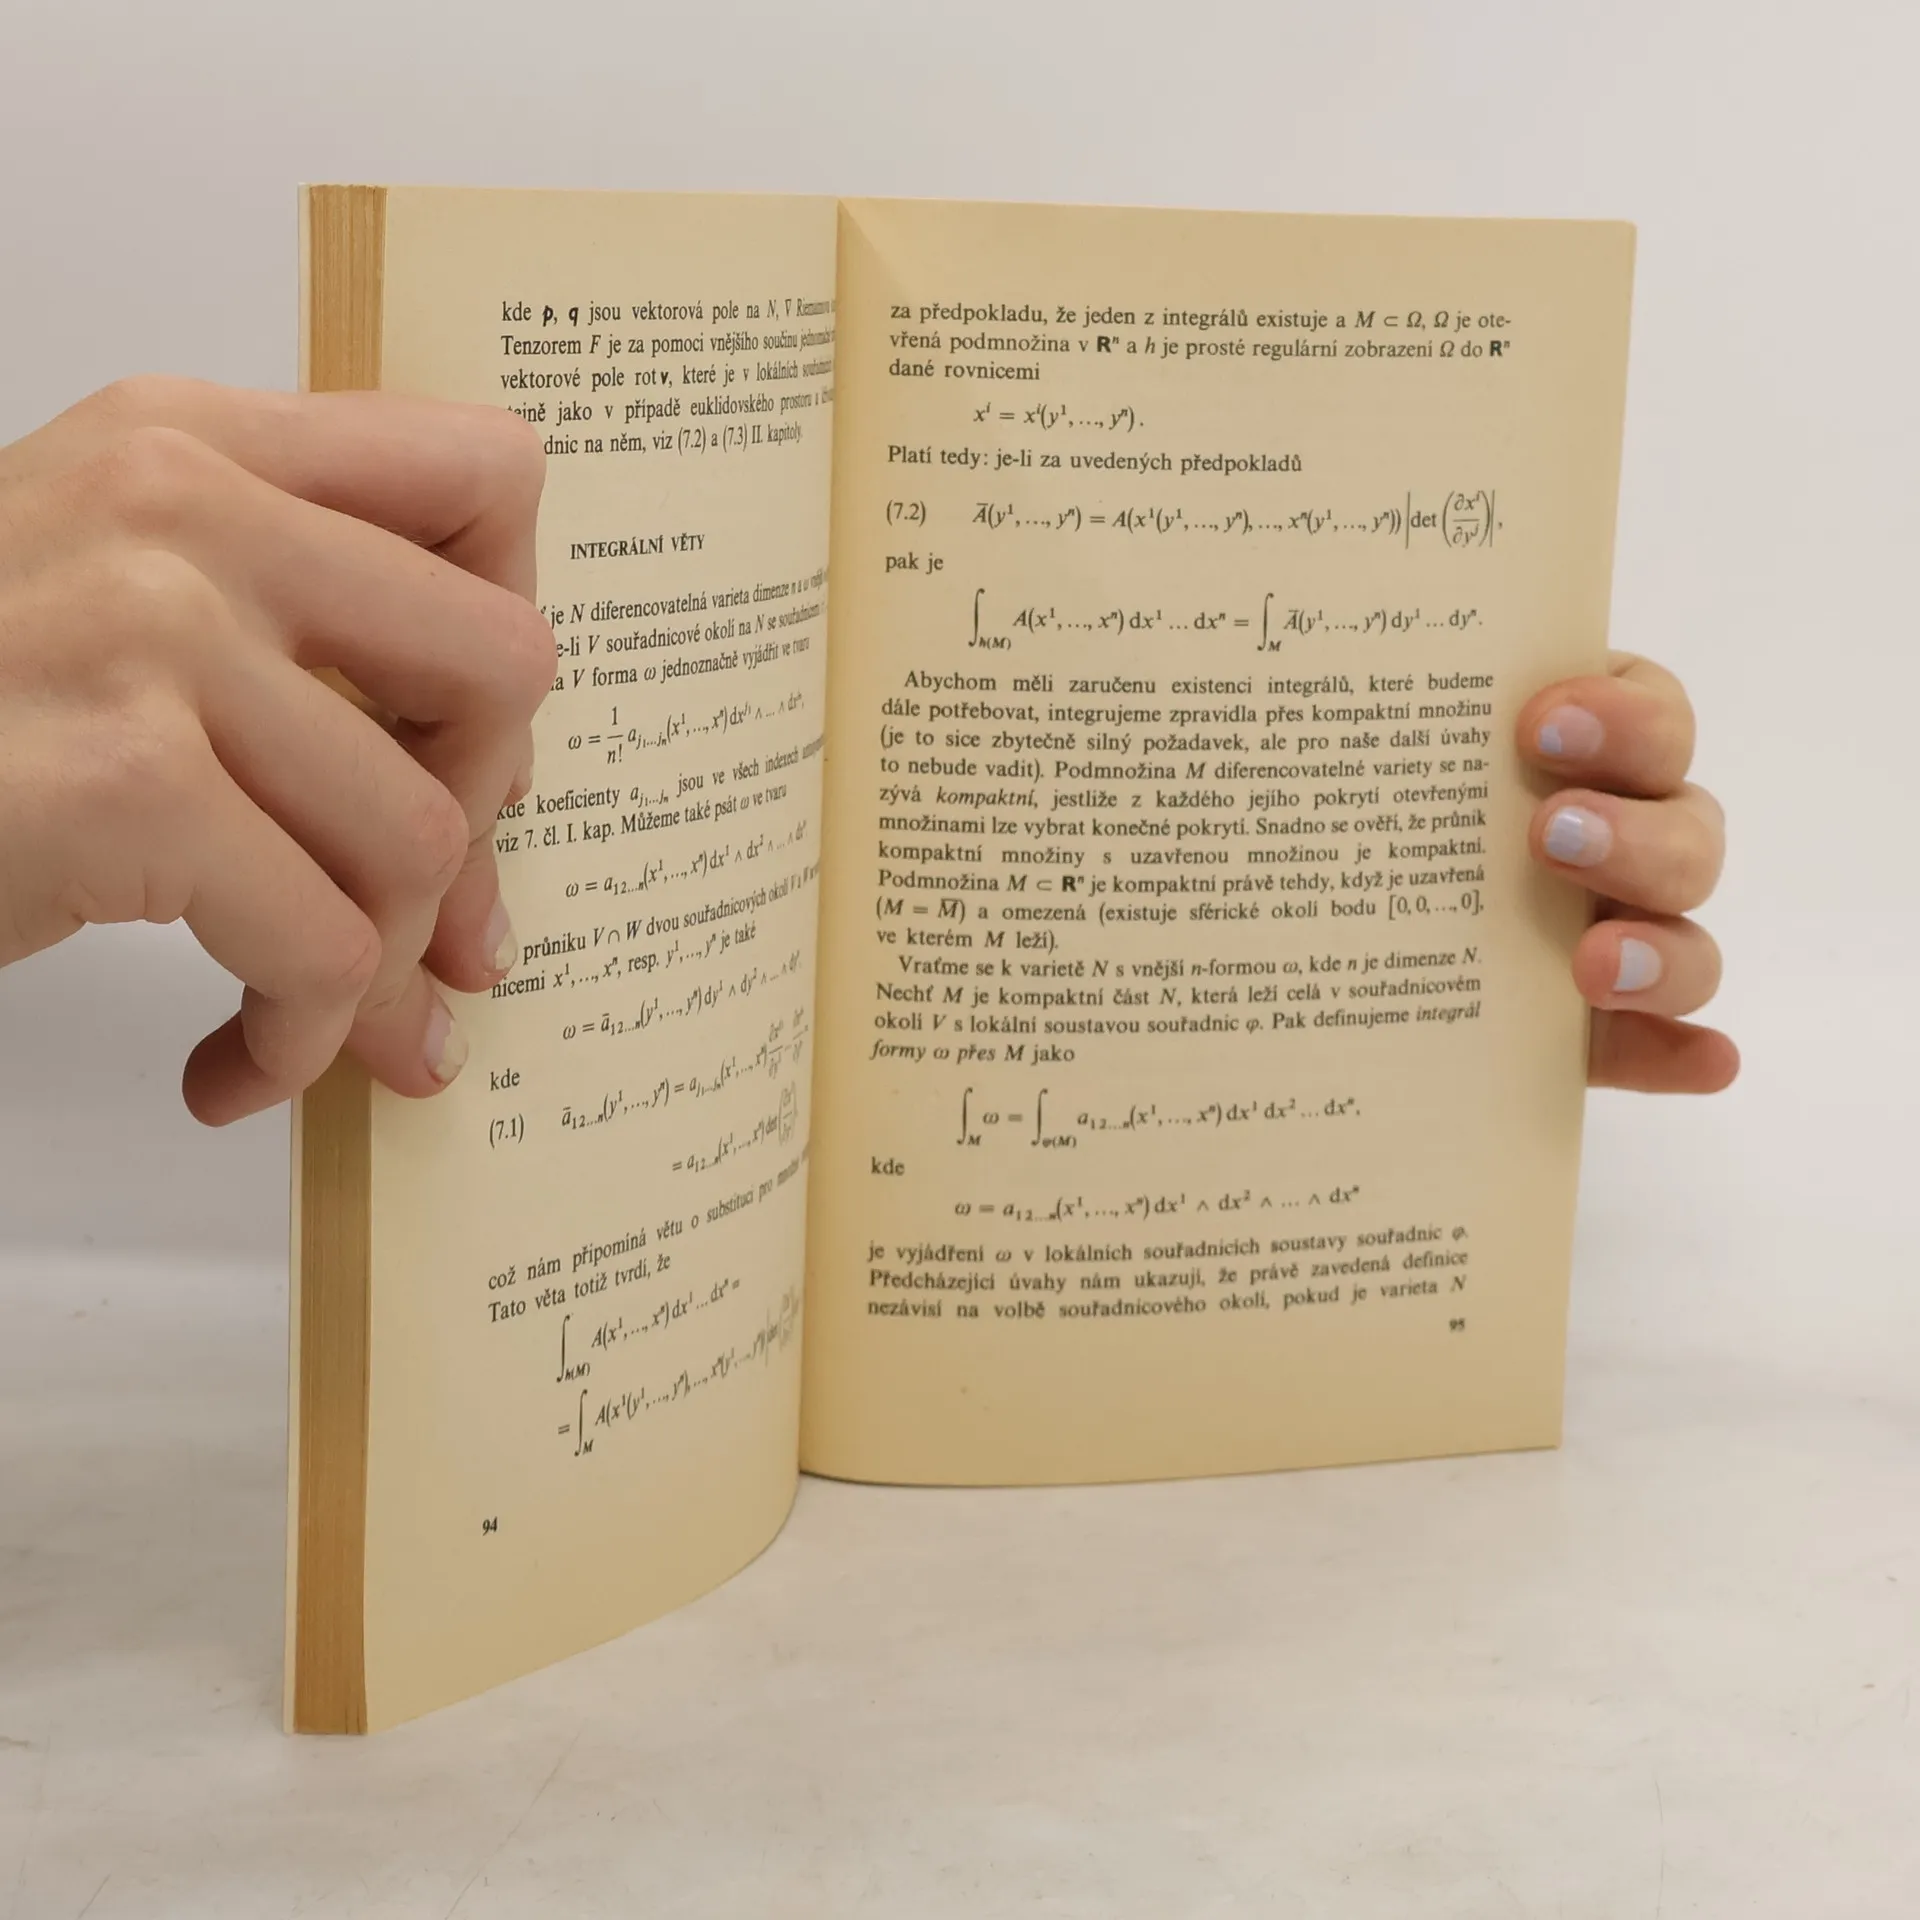 kde p, q jsou vektorová pole na N, ∇
Tenzorem F je za pomoci vnějšího součinu
vektorové pole rot v, které je v lokálních
jako v případě euklidovského prostoru a
dnic na něm, viz (7.2) a (7.3) II. kapitoly.
INTEGRÁLNÍ VĚTY
je N diferencovatelná varieta dimenze n a ω
-li V souřadnicové okolí na N se
V forma ω jednoznačně vyjádřit ve tvaru
ω = 1/n! a_{j₁...jₙ}(x¹, ..., xⁿ) dx^{j₁} ∧ ... ∧
kde koeficienty a_{j₁...jₙ} jsou ve všech indexech
viz 7. čl. I. kap. Můžeme také psát ω ve tvaru
ω = a₁₂...ₙ(x¹, ..., xⁿ) dx¹ ∧ dx² ∧ ... ∧ dxⁿ
průniku V ∩ W dvou souřadnicových okolí V a W
nicemi x¹, ..., xⁿ, resp. y¹, ..., yⁿ je také
ω = ā₁₂...ₙ(y¹, ..., yⁿ) dy¹ ∧ dy² ∧ ... ∧ dyⁿ
kde
(7.1) ā₁₂...ₙ(y¹, ..., yⁿ) = a_{j₁...jₙ}(x¹, ..., xⁿ)
= a₁₂...ₙ(x¹, ..., xⁿ) det
což nám připomíná větu o substituci pro
Tato věta totiž tvrdí, že
∫_{h(M)} A(x¹, ..., xⁿ) dx¹ ... dxⁿ =
= ∫_M A(x¹(y¹, ..., yⁿ), ..., xⁿ(y¹, ..., yⁿ))
94
za předpokladu, že jeden z integrálů existuje a M ⊂ Ω, Ω je ote-
vřená podmnožina v Rⁿ a h je prosté regulární zobrazení Ω do Rⁿ
dané rovnicemi
xⁱ = xⁱ(y¹, ..., yⁿ).
Platí tedy: je-li za uvedených předpokladů
(7.2) Ā(y¹, ..., yⁿ) = A(x¹(y¹, ..., yⁿ), ..., xⁿ(y¹, ..., yⁿ)) |det (∂xⁱ/∂yʲ)|,
pak je
∫_{h(M)} A(x¹, ..., xⁿ) dx¹ ... dxⁿ = ∫_M Ā(y¹, ..., yⁿ) dy¹ ... dyⁿ.
Abychom měli zaručenu existenci integrálů, které budeme
dále potřebovat, integrujeme zpravidla přes kompaktní množinu
(je to sice zbytečně silný požadavek, ale pro naše další úvahy
to nebude vadit). Podmnožina M diferencovatelné variety se na-
zývá kompaktní, jestliže z každého jejího pokrytí otevřenými
množinami lze vybrat konečné pokrytí. Snadno se ověří, že průnik
kompaktní množiny s uzavřenou množinou je kompaktní.
Podmnožina M ⊂ Rⁿ je kompaktní právě tehdy, když je uzavřená
(M = M̄) a omezená (existuje sférické okolí bodu [0, 0, ..., 0],
ve kterém M leží).
Vraťme se k varietě N s vnější n-formou ω, kde n je dimenze N.
Nechť M je kompaktní část N, která leží celá v souřadnicovém
okolí V s lokální soustavou souřadnic φ. Pak definujeme integrál
formy ω přes M jako
∫_M ω = ∫_{φ(M)} a₁₂...ₙ(x¹, ..., xⁿ) dx¹ dx² ... dxⁿ,
kde
ω = a₁₂...ₙ(x¹, ..., xⁿ) dx¹ ∧ dx² ∧ ... ∧ dxⁿ
je vyjádření ω v lokálních souřadnicích soustavy souřadnic φ.
Předcházející úvahy nám ukazují, že právě zavedená definice
nezávisí na volbě souřadnicového okolí, pokud je varieta N
95